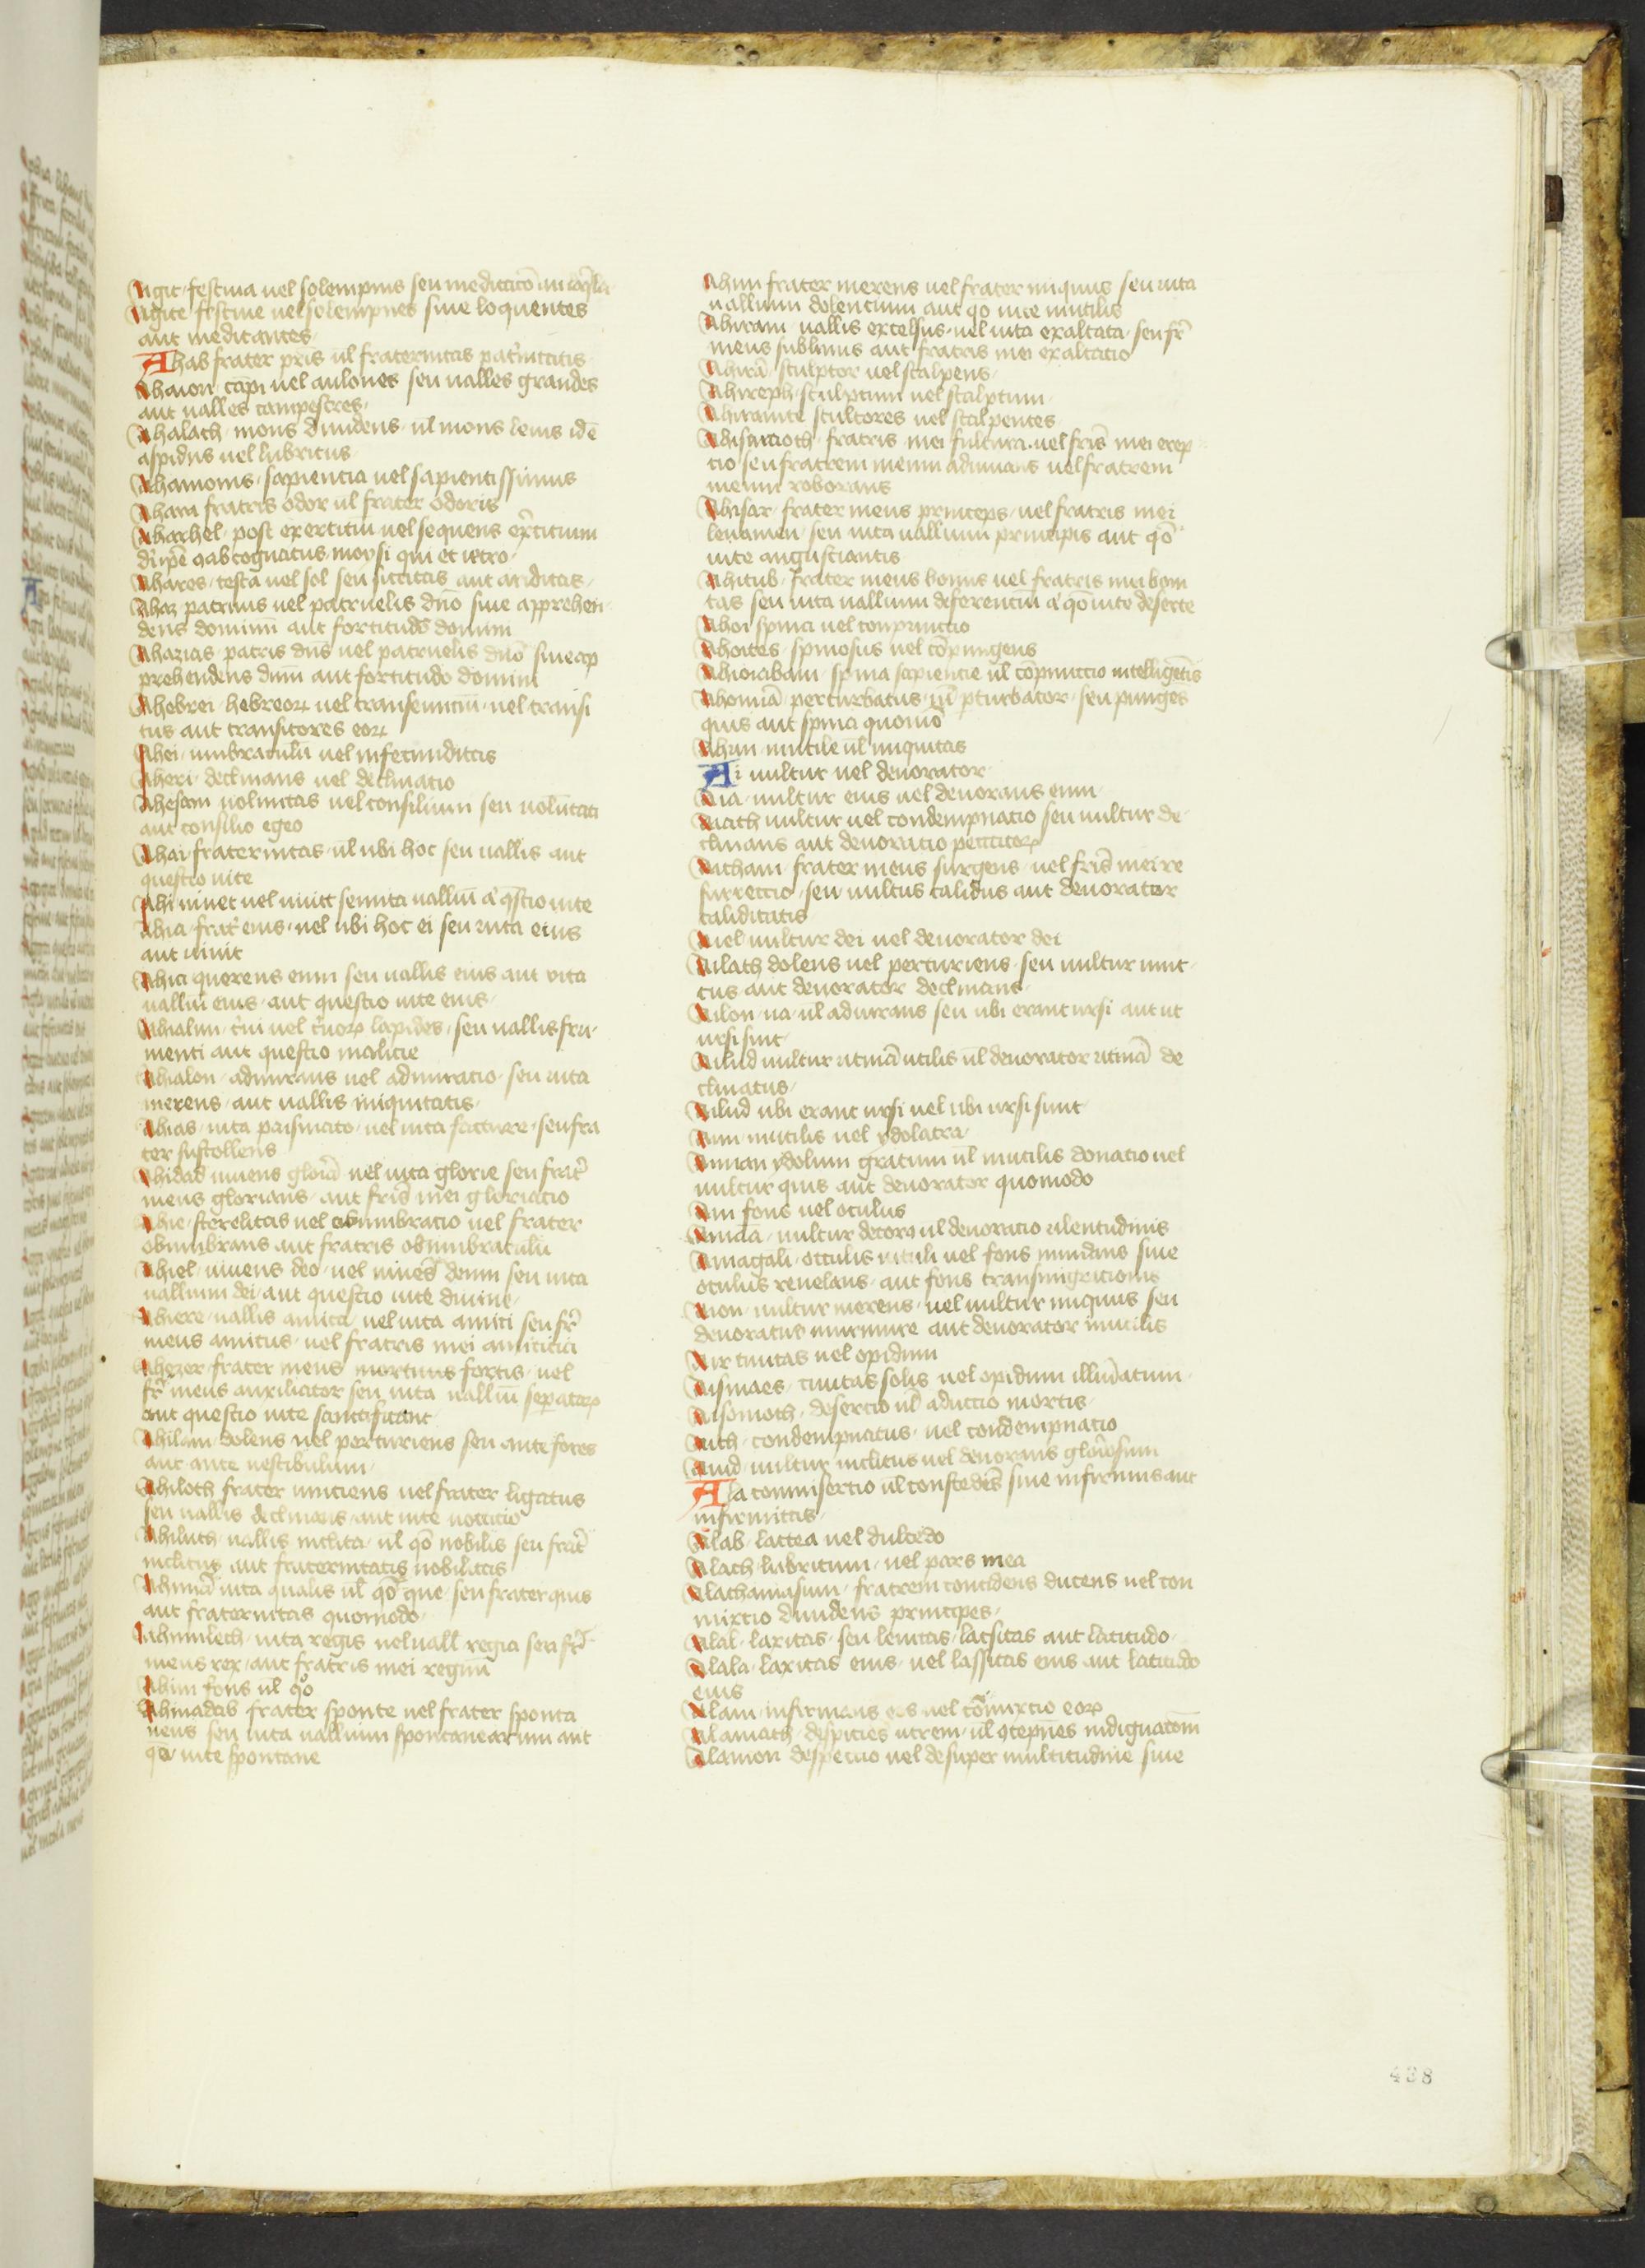 Agit festina uel solempnis seu meditatō
Agite festine uel solempnes siue loquentes
aut meditantes
Ahab frater pris ul fraternitas pat'nitatis
Ahaion cāpi uel aulones seu ualles grandes
aut ualles campestres
Ahalach mons diuidens ul mons leuis idē
aspidus uel lubricus
Ahamonis sapiencia uel sapientissimus
Ahara fratris odor ul frater odoris
Aharhel post exercitū uel sequens ex'citum
cognatus moysi qui et ietro
Ahares testa uel sol seu siccitas aut ariditas
Ahaz patruus uel patruelis dnō siue apprehen
dens dominū aut fortitudo domini
Aharias patris dns uel patruelis dnō siue ap
prehendens dnm aut fortitudo domini
Ahebrei hebreoꝝ uel transeunciū uel transi
tus aut transitores eoꝝ
Ahei umbraculū uel infecunditas
Aheri declinans uel declinatio
Ahesam uoluntas uel consilium seu uolūtati
aut consilio egeo
Ahai fraternitas ul ubi hoc seu uallis aut
questio uite
Ahi uiuet uel uiuit ualliū uite
Ahia frat' eius uel ubi hoc ei seu uita eius
aut uiuit
Ahia querens eum seu uallis eius aut vita
ualliū eius aut questio uite eius
Ahialim uel lapides seu uallis fru
menti aut questio malicie
Ahialon admirans uel admiratio seu uita
merens aut uallis iniquitatis
Ahias uita uel uita facture seu fra
ter sustollens
Ahidad uiuens gloria uel uita glorie seu frat'
meus glorians aut fris mei gloriatio
Ahie sterelitas uel obumbratio uel frater
obumbrans aut fratris obumbraculū
Ahiel uiuens deo uel uiuēs deum seu uita
uallium dei aut questio uite diuine
Ahiere uallis amica uel uita amici seu fr'
meus amicus uel fratris mei amiticia
Ahezer frater meus mortuus fortis uel
fr' meus auxiliator seu uita ualliū separatoꝝ
aut questio uite sanctificant
Ahilam dolens uel parturiens seu ante fores
aut ante uestibulum
Ahiloth frater uinciens uel frater ligatus
seu uallis declinans aut uite
Ahiluth uallis inclita ul qō nobilis seu frat'
inclitus aut fraternitatis nobilitas
Ahimā uita qualis ul qō que seu frater quis
aut fraternitas quomodo
Ahimlech uita regis uel uall regia seu fr'
meus rex aut fratris mei regnū
Ahim fons ul qō
Ahinadab frater sponte uel frater sponta
neus seu uita uallium spontanearum aut
qō uite spontane
Ahim frater merens uel frater iniquus seu uita
uallium dolencium aut qō uite inutilis
Ahiram uallis excelsus uel uita exaltata seu fr'
meus sublimis aut fratris mei exaltatio
Ahirā sculptor uel scalpens
Ahireph sculptum uel scalptum
Ahiramite scultores uel scalpentes
Ahisamoth fratris mei fultura uel fris mei erep
tio seu fratrem meum adunans uel fratrem
meum roborans
Ahisar frater meus princeps uel fratris mei
leuamen seu uita uallium principis aut qō
uite angustiantis
Ahitub frater meus bonus uel fratris mei boni
tas seu uita uallium deferenciū a' qō uite deserte
Ahoi spina uel conpunctio
Ahoites spinosus uel cōpungens
Ahiorabam spina sapiencie ul cōpunctio intelligētis
Ahomā perturbatus ul pturbator seu punges
quis aut spina quomō
Ahun inutile ul iniquitas
Ai uultur uel deuorator
Aia uultur eius uel deuorans eum
Aiath uultur uel condempnatio seu uultur de
clinans aut deuoratio peccatoꝝ
Aicham frater meus surgens uel fris mei re
surrectio seu uultus calidus aut deuorator
caliditatis
Aiel uultur dei uel deuorator dei
Ailath dolens uel perturiens seu uultur iunc
tus aut deuorator declinans
Ailon ua ul admirans seu ubi erant ursi aut ut
ursi sunt
Ailud uultur utinā utilis ul deuorator utinā de
clinatus
Ailud ubi erant ursi uel ubi ursi sunt
Aim inutilis uel ydolatra
Aiman ydolum gratum ul inutilis donatio uel
uultur quis aut deuorator quomodo
Ain fons uel oculus
Ainda uultur decorꝰ ul deuoratio ualentudinis
Ainagali occulis uituli uel fons mundans siue
oculus reuelans aut fons transmigrationis
Aion uultur merens uel uultur iniquus seu
deuoratus murmure aut deuorator inutilis
Air ciuitas uel opidum
Aismaes ciuitas solis uel opidum illuminatum
Aisomoth desertio ul aductio mortis
Aith condempnatus uel condempnatio
Aiud uultur inclitus uel deuorans gloriosum
Ala commisertio ul conscēdēs siue infirmus aut
infirmitas
Alab lactea uel dulcedo
Alach lubricum uel pars mea
Alachamasim fratrem concidens ducens uel con
mixtio diuidens principes
Alal laxitas seu lenitas lassitas aut latitudo
Alala laxitas eius uel lassitas eius aut latitudo
eius
Alam infirmans eos uel cōmixtio eoꝝ
Alamath despiciēs utrem ul ꝯtepnēs indignatōm
Alamon despectio uel desuper multitudine siue
438